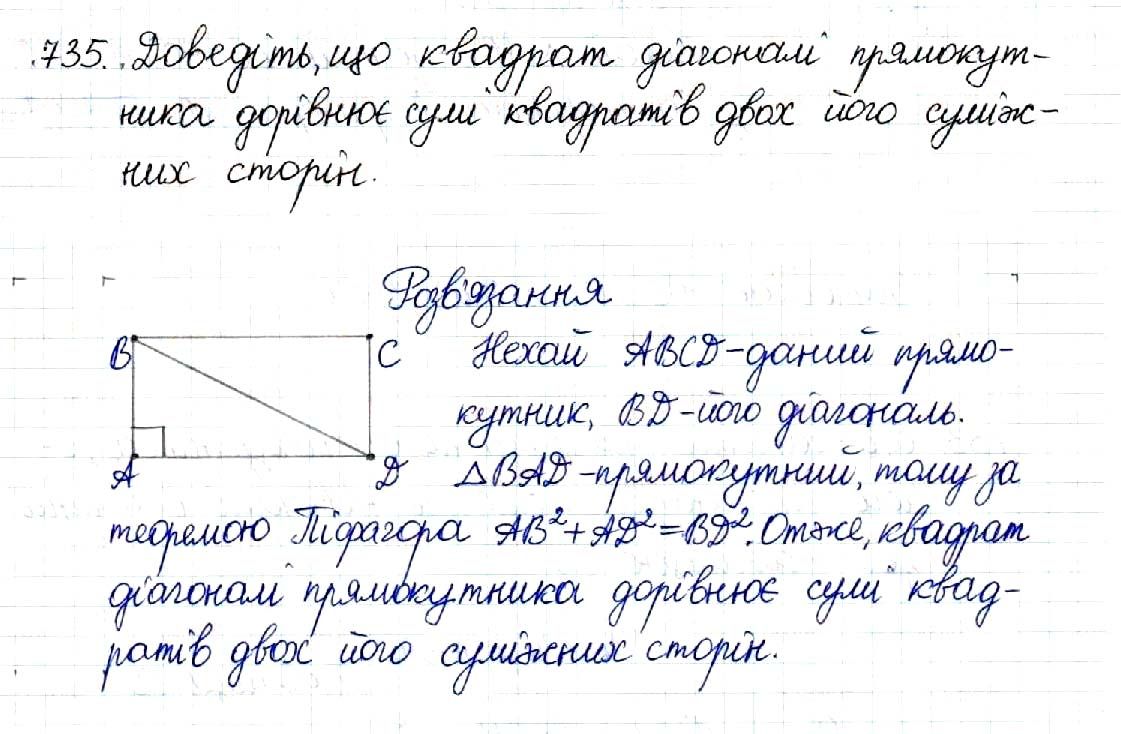 735. Доведіть, що квадрат діагоналі прямокут-
ника дорівнює сумі квадратів двох його суміж-
них сторін.
Розв'язання
B
C
Нехай ABCD - даний прямо-
кутник, BD - його діагональ.
A
D
△BAD - прямокутний, тому за
теоремою Піфагора AB² + AD² = BD². Отже, квадрат
діагоналі прямокутника дорівнює сумі квад-
ратів двох його суміжних сторін.